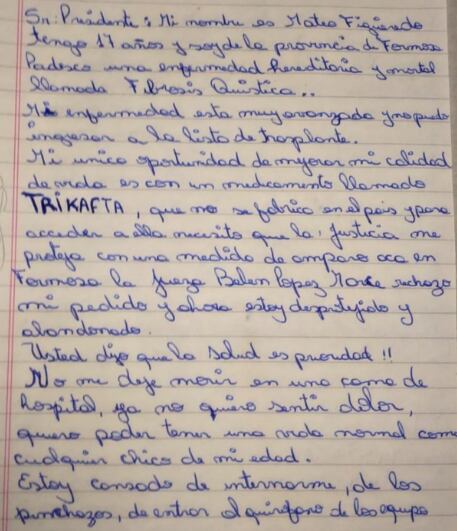 Sr. Presidente: Mi nombre es Mateo Figueredo
tengo 17 años y soy de la provincia de Formosa
Padesco una enfermedad hereditaria y mortal
llamada Fibrosis Quistica..
Mi enfermedad esta muy avanzada y no pude
ingresar a la lista de trasplante.
Mi unica oportunidad de mejorar mi calidad
de vida es con un medicamento llamado
TRIKAFTA, que no se fabrica en el pais y para
acceder a ella necesito que la Justicia me
proteja con una medida de amparo aca en
Formosa la Jueza Belen Lopez Mace rechazo
mi pedido y ahora estoy desprotejido y
abandonado.
Usted dijo que la salud es prioridad !!
No me deje morir en una cama de
hospital, ya no quiero sentir dolor,
quiero poder tener una vida normal como
cualquier chico de mi edad.
Estoy cansado de internarme, de los
pinchazos, de entrar al quirofano de los equipo